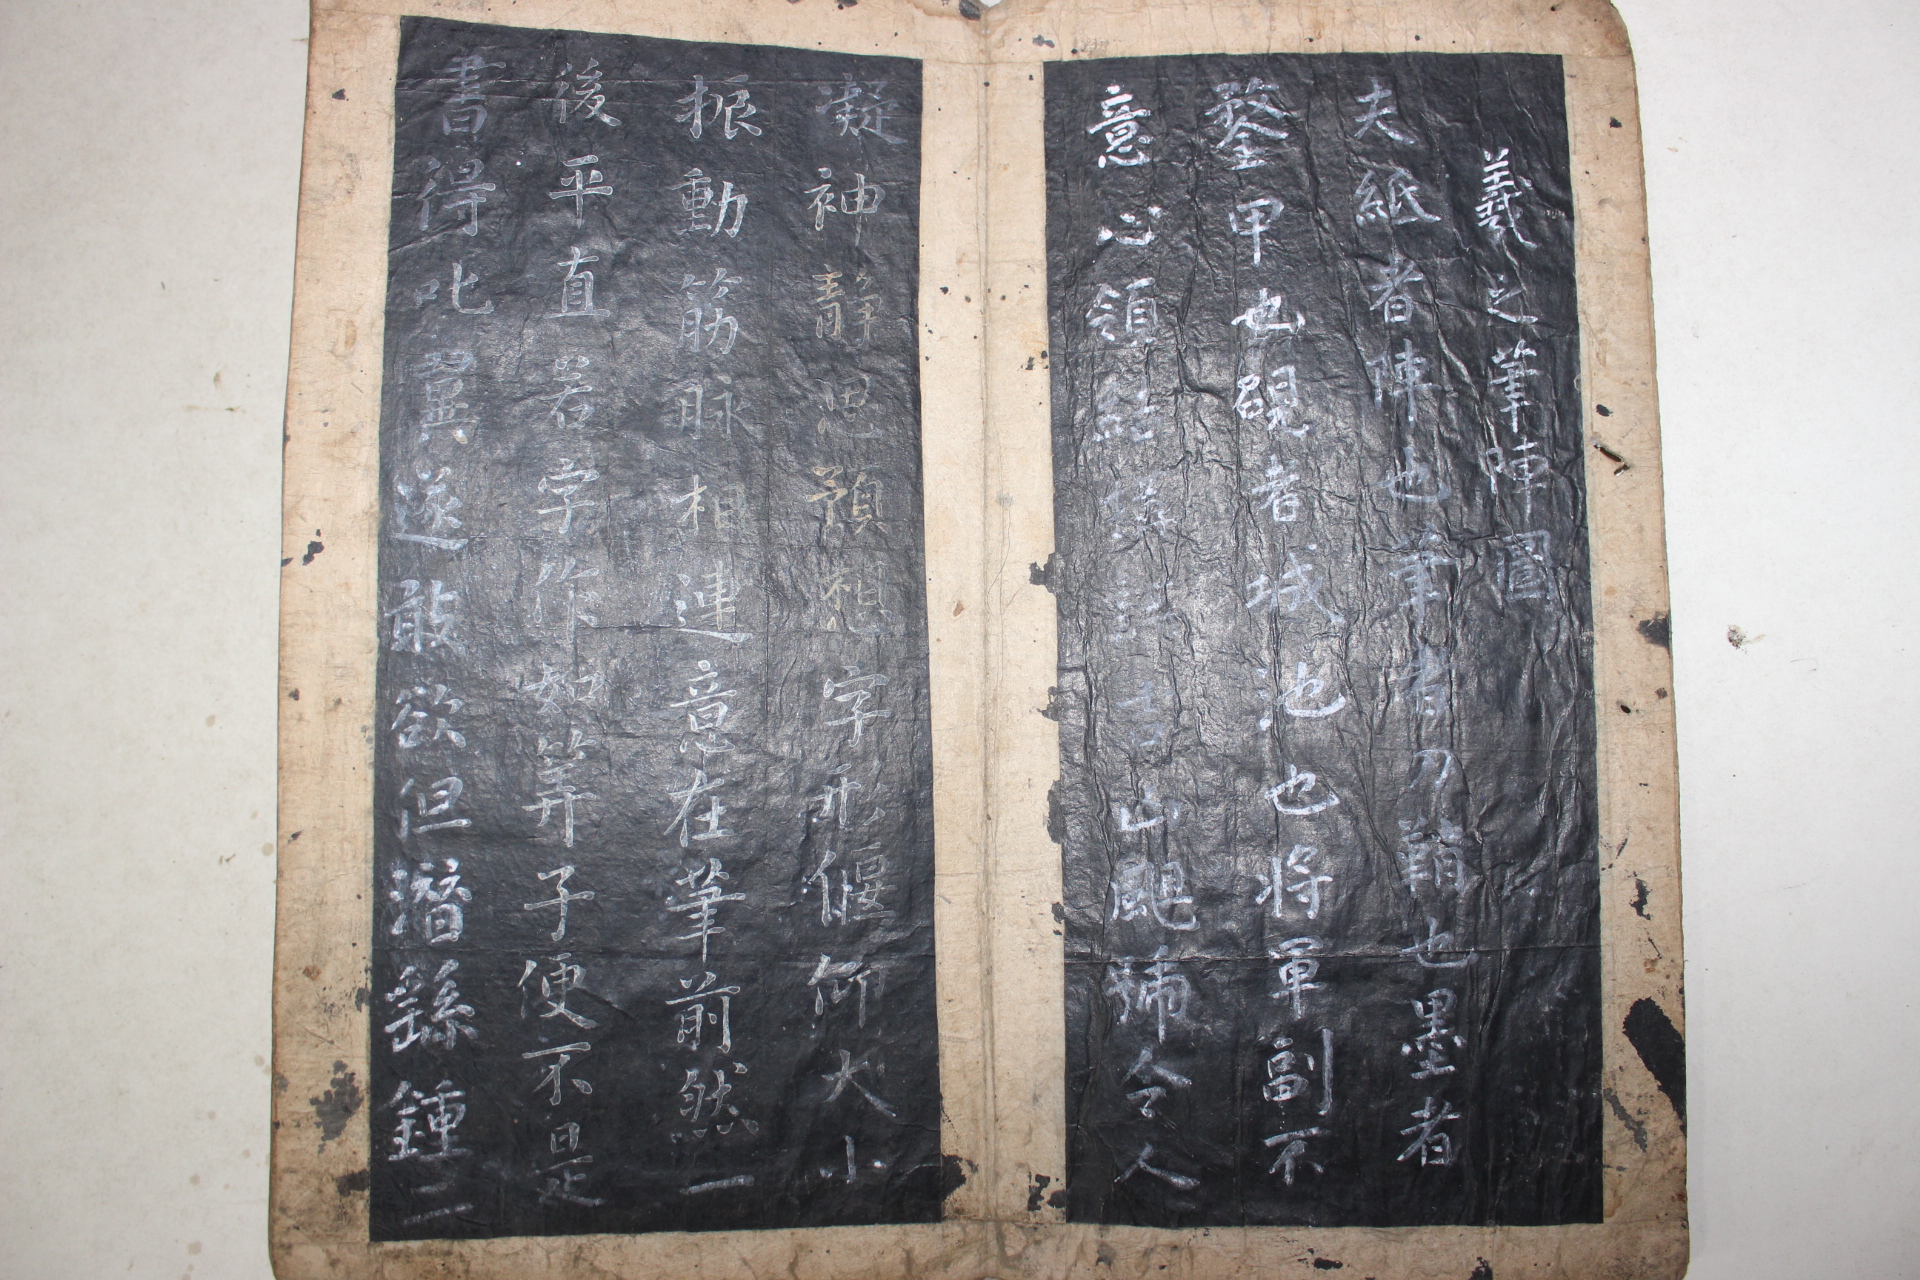 羲之筆陣圖
夫紙者陣也筆者刀鞘也墨者
鍪甲也硯者城池也将軍副不
意心領結構吉山颶令人
凝神靜思預想字形偃仰大小
振動筋脉相連意在筆前然一
後平直若字作如筭子便不是
書得叱翼遂敢欲但潛繇鍾二